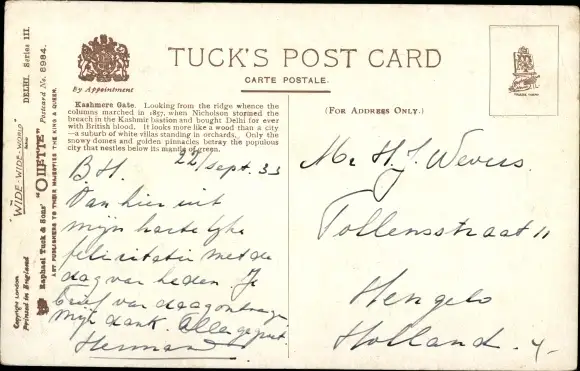 TUCK'S POST CARD
CARTE POSTALE.
By Appointment
Kashmere Gate. Looking from the ridge whence the
columns marched in 1857, when Nicholson stormed the
breach in the Kashmir bastion and bought Delhi for ever
with British blood. It looks more like a wood than a city
—a suburb of white villas standing in orchards. Only the
snowy domes and golden pinnacles betray the populous
city that nestles below its mantle of green.
22/Sept. 33
B H.
Van hier uit
mijn hartelyke
felicitatie met de
dag van heden. Je
brief van daag ontvangen
mijn dank. Allen gegroet.
Herman
(FOR ADDRESS ONLY.)
Mr H. J. Wevers.
Tollensstraat 11
Hengelo
Holland.
"WIDE-WIDE-WORLD" DELHI. Series III.
Raphael Tuck & Sons' "OILETTE" Postcard No. 8984.
ART PUBLISHERS TO THEIR MAJESTIES THE KING & QUEEN.
Copyright London
Printed in England